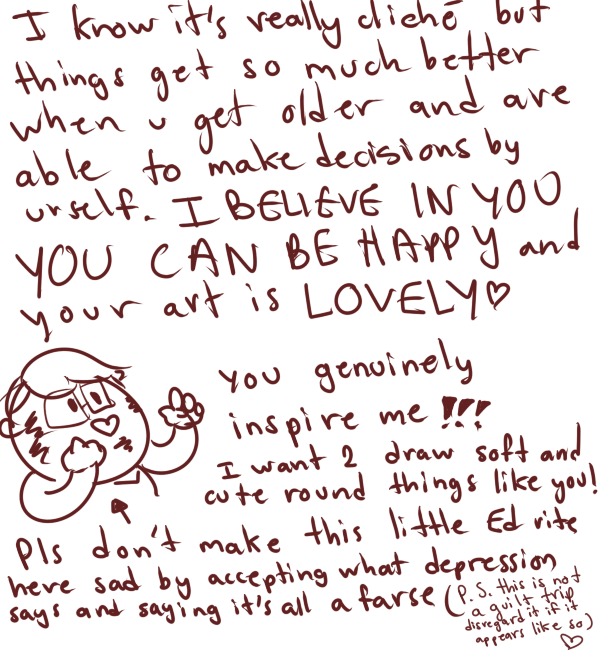 I know it's really cliché but
things get so much better
when u get older and are
able to make decisions by
urself. I BELIEVE IN YOU
YOU CAN BE HAPPY and
your art is LOVELY♡
you genuinely
inspire me !!!
I want 2 draw soft and
cute round things like you!
Pls don't make this little Ed rite
here sad by accepting what depression
says and saying it's all a farse (P.S. this is not
a guilt trip
disregard it if it
appears like so)
♡